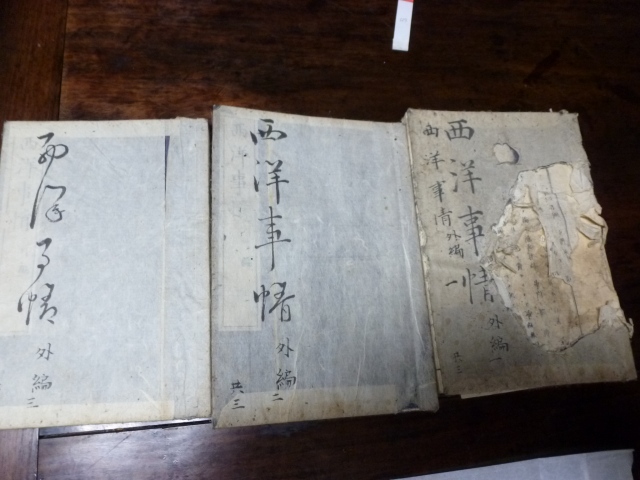 西洋事情
外編一
共三
西洋事情外編
一
西洋事情
外編二
共三
西洋事情
外編三